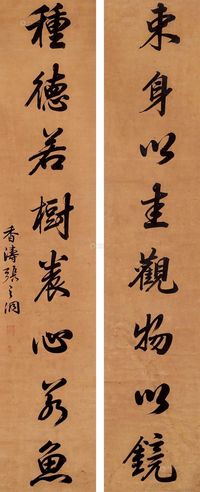 束身以圭觀物以鏡
種德若樹養心若魚
香濤張之洞